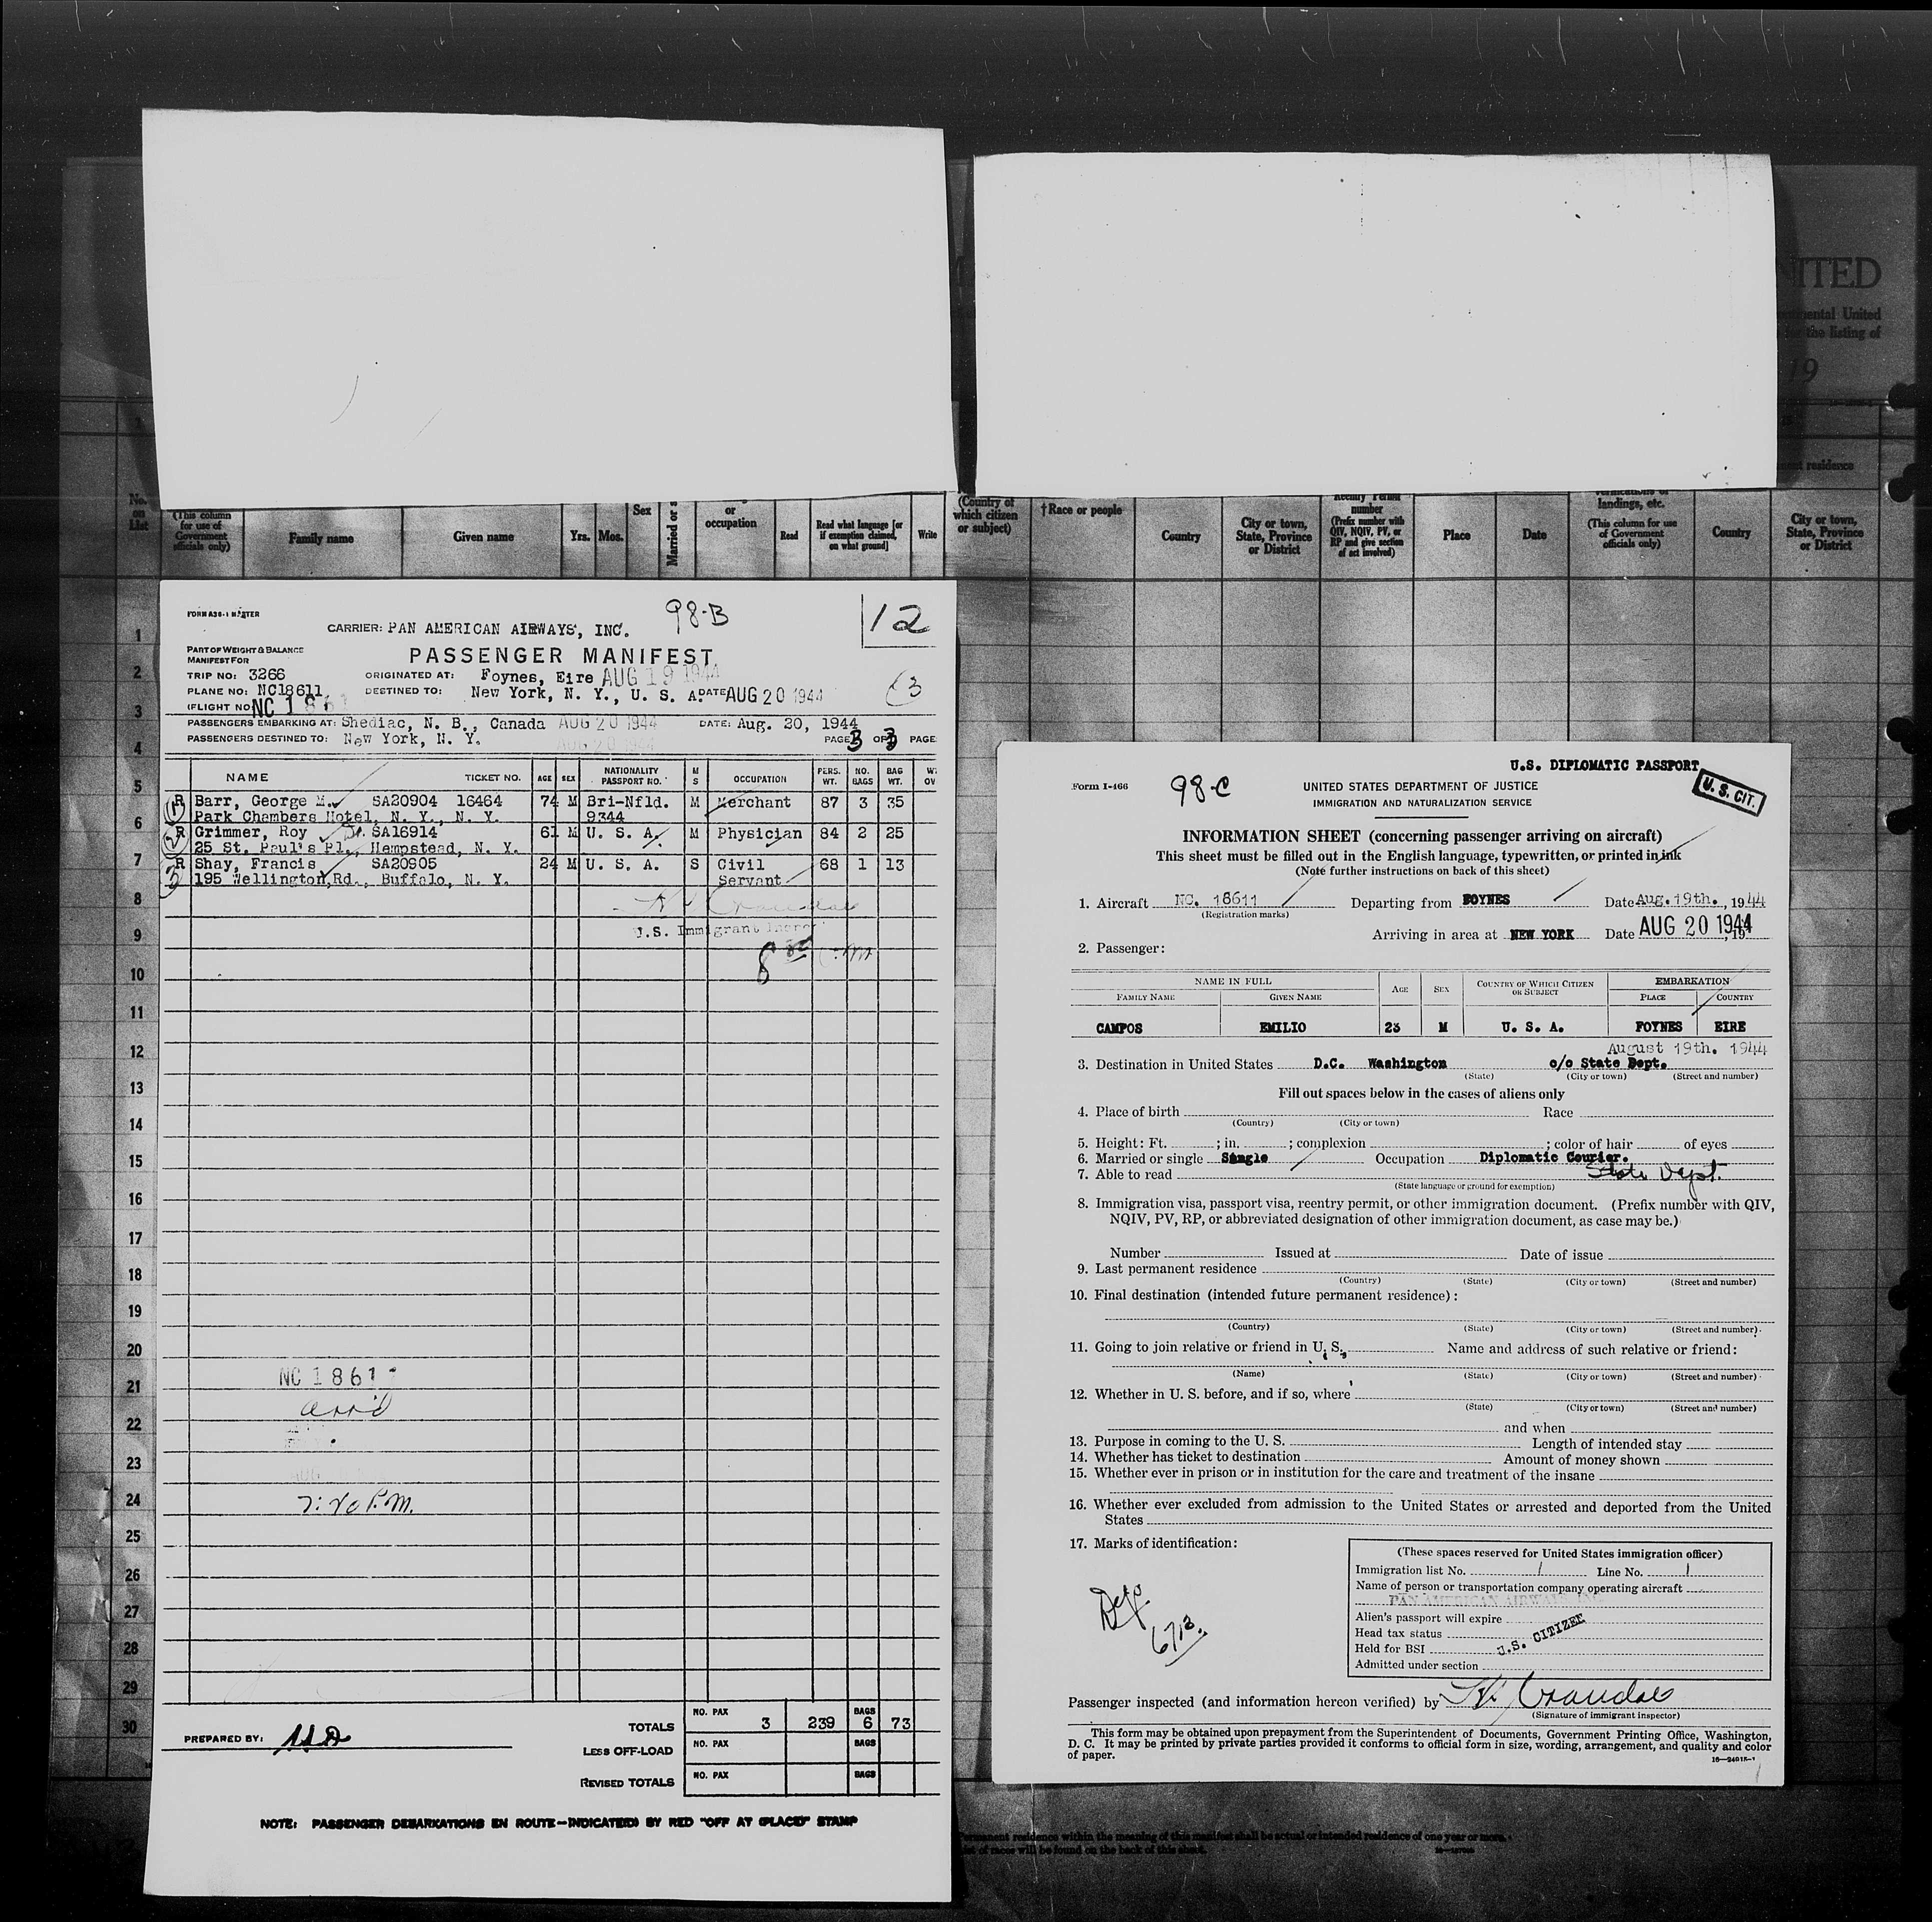 NITED
mental United
for the listing of
19
residence
No.
on
List
(This column
for use of
Government
officials only)
Family name
Given name
Yrs.
Mos.
Sex
Married or s
or
occupation
Read
Read what language [or
if exemption claimed,
on what ground]
Write
(Country of
which citizen
or subject)
†Race or people
Country
City or town,
State, Province
or District
number
(Prefix number with
QIV, NQIV, PV, or
RP and give section
of act involved)
Place
Date
landings, etc.
(This column for use
of Government
officials only)
Country
City or town,
State, Province
or District
1
2
3
4
5
6
7
8
9
10
11
12
13
14
15
16
17
18
19
20
21
22
23
24
25
26
27
28
29
30
FORM A36-1 MASTER
98-B
12
CARRIER: PAN AMERICAN AIRWAYS, INC.
PART OF WEIGHT & BALANCE
MANIFEST FOR
PASSENGER MANIFEST
TRIP NO: 3266 ORIGINATED AT: Foynes, Eire AUG 19 1944
PLANE NO: NC18611 DESTINED TO: New York, N. Y., U. S. A. DATE AUG 20 1944
(FLIGHT NO) NC 1861
3
PASSENGERS EMBARKING AT: Shediac, N. B., Canada AUG 20 1944 DATE: Aug. 20, 1944
PASSENGERS DESTINED TO: New York, N. Y. AUG 20 1944 PAGE 3 OF 3 PAGE
NAME TICKET NO. AGE SEX NATIONALITY PASSPORT NO. M S OCCUPATION PERS. WT. NO. BAGS BAG WT.
1 R Barr, George M. SA20904 16464 74 M Bri-Nfld. M Merchant 87 3 35
Park Chambers Hotel, N. Y., N. Y. 9344
2 R Grimmer, Roy Jr. SA16914 61 M U. S. A. M Physician 84 2 25
25 St. Paul's Pl., Hempstead, N. Y.
3 R Shay, Francis SA20905 24 M U. S. A. S Civil 68 1 13
195 Wellington Rd., Buffalo, N. Y. Servant
U.S. Immigrant Inspector
NC 18611
arr'd
7:20 P.M.
TOTALS NO. PAX 3 239 BAGS 6 73
PREPARED BY:
LESS OFF-LOAD NO. PAX BAGS
REVISED TOTALS NO. PAX BAGS
NOTE: PASSENGER DEBARKATIONS EN ROUTE—INDICATED BY RED "OFF AT (PLACE)" STAMP
U.S. DIPLOMATIC PASSPORT
U. S. CIT.
Form I-466
98-C
UNITED STATES DEPARTMENT OF JUSTICE
IMMIGRATION AND NATURALIZATION SERVICE
INFORMATION SHEET (concerning passenger arriving on aircraft)
This sheet must be filled out in the English language, typewritten, or printed in ink
(Note further instructions on back of this sheet)
1. Aircraft NC. 18611 Departing from FOYNES Date Aug. 19th., 1944
(Registration marks)
Arriving in area at NEW YORK Date AUG 20 1944, 19
2. Passenger:
NAME IN FULL AGE SEX COUNTRY OF WHICH CITIZEN OR SUBJECT EMBARKATION
FAMILY NAME GIVEN NAME PLACE COUNTRY
CAMPOS EMILIO 23 M U. S. A. FOYNES EIRE
August 19th. 1944
3. Destination in United States D.C. Washington c/o State Dept.
(State) (City or town) (Street and number)
Fill out spaces below in the cases of aliens only
4. Place of birth Race
(Country) (City or town)
5. Height: Ft. ; in. ; complexion ; color of hair of eyes
6. Married or single Single Occupation Diplomatic Courier.
7. Able to read State Dept.
(State language or ground for exemption)
8. Immigration visa, passport visa, reentry permit, or other immigration document. (Prefix number with QIV,
NQIV, PV, RP, or abbreviated designation of other immigration document, as case may be.)
Number Issued at Date of issue
9. Last permanent residence
(Country) (State) (City or town) (Street and number)
10. Final destination (intended future permanent residence):
(Country) (State) (City or town) (Street and number)
11. Going to join relative or friend in U. S. Name and address of such relative or friend:
(Name) (State) (City or town) (Street and number)
12. Whether in U. S. before, and if so, where
(State) (City or town) (Street and number)
and when
13. Purpose in coming to the U. S. Length of intended stay
14. Whether has ticket to destination Amount of money shown
15. Whether ever in prison or in institution for the care and treatment of the insane
16. Whether ever excluded from admission to the United States or arrested and deported from the United
States
17. Marks of identification:
(These spaces reserved for United States immigration officer)
Immigration list No. 1 Line No. 1
Name of person or transportation company operating aircraft
PAN AMERICAN AIRWAYS INC.
Alien's passport will expire
Head tax status
Held for BSI U.S. CITIZEN
Admitted under section
Passenger inspected (and information hereon verified) by
(Signature of immigrant inspector)
This form may be obtained upon prepayment from the Superintendent of Documents, Government Printing Office, Washington,
D. C. It may be printed by private parties provided it conforms to official form in size, wording, arrangement, and quality and color
of paper.
permanent residence within the meaning of this manifest shall be actual or intended residence of one year or more.
list of races will be found on the back of this sheet.